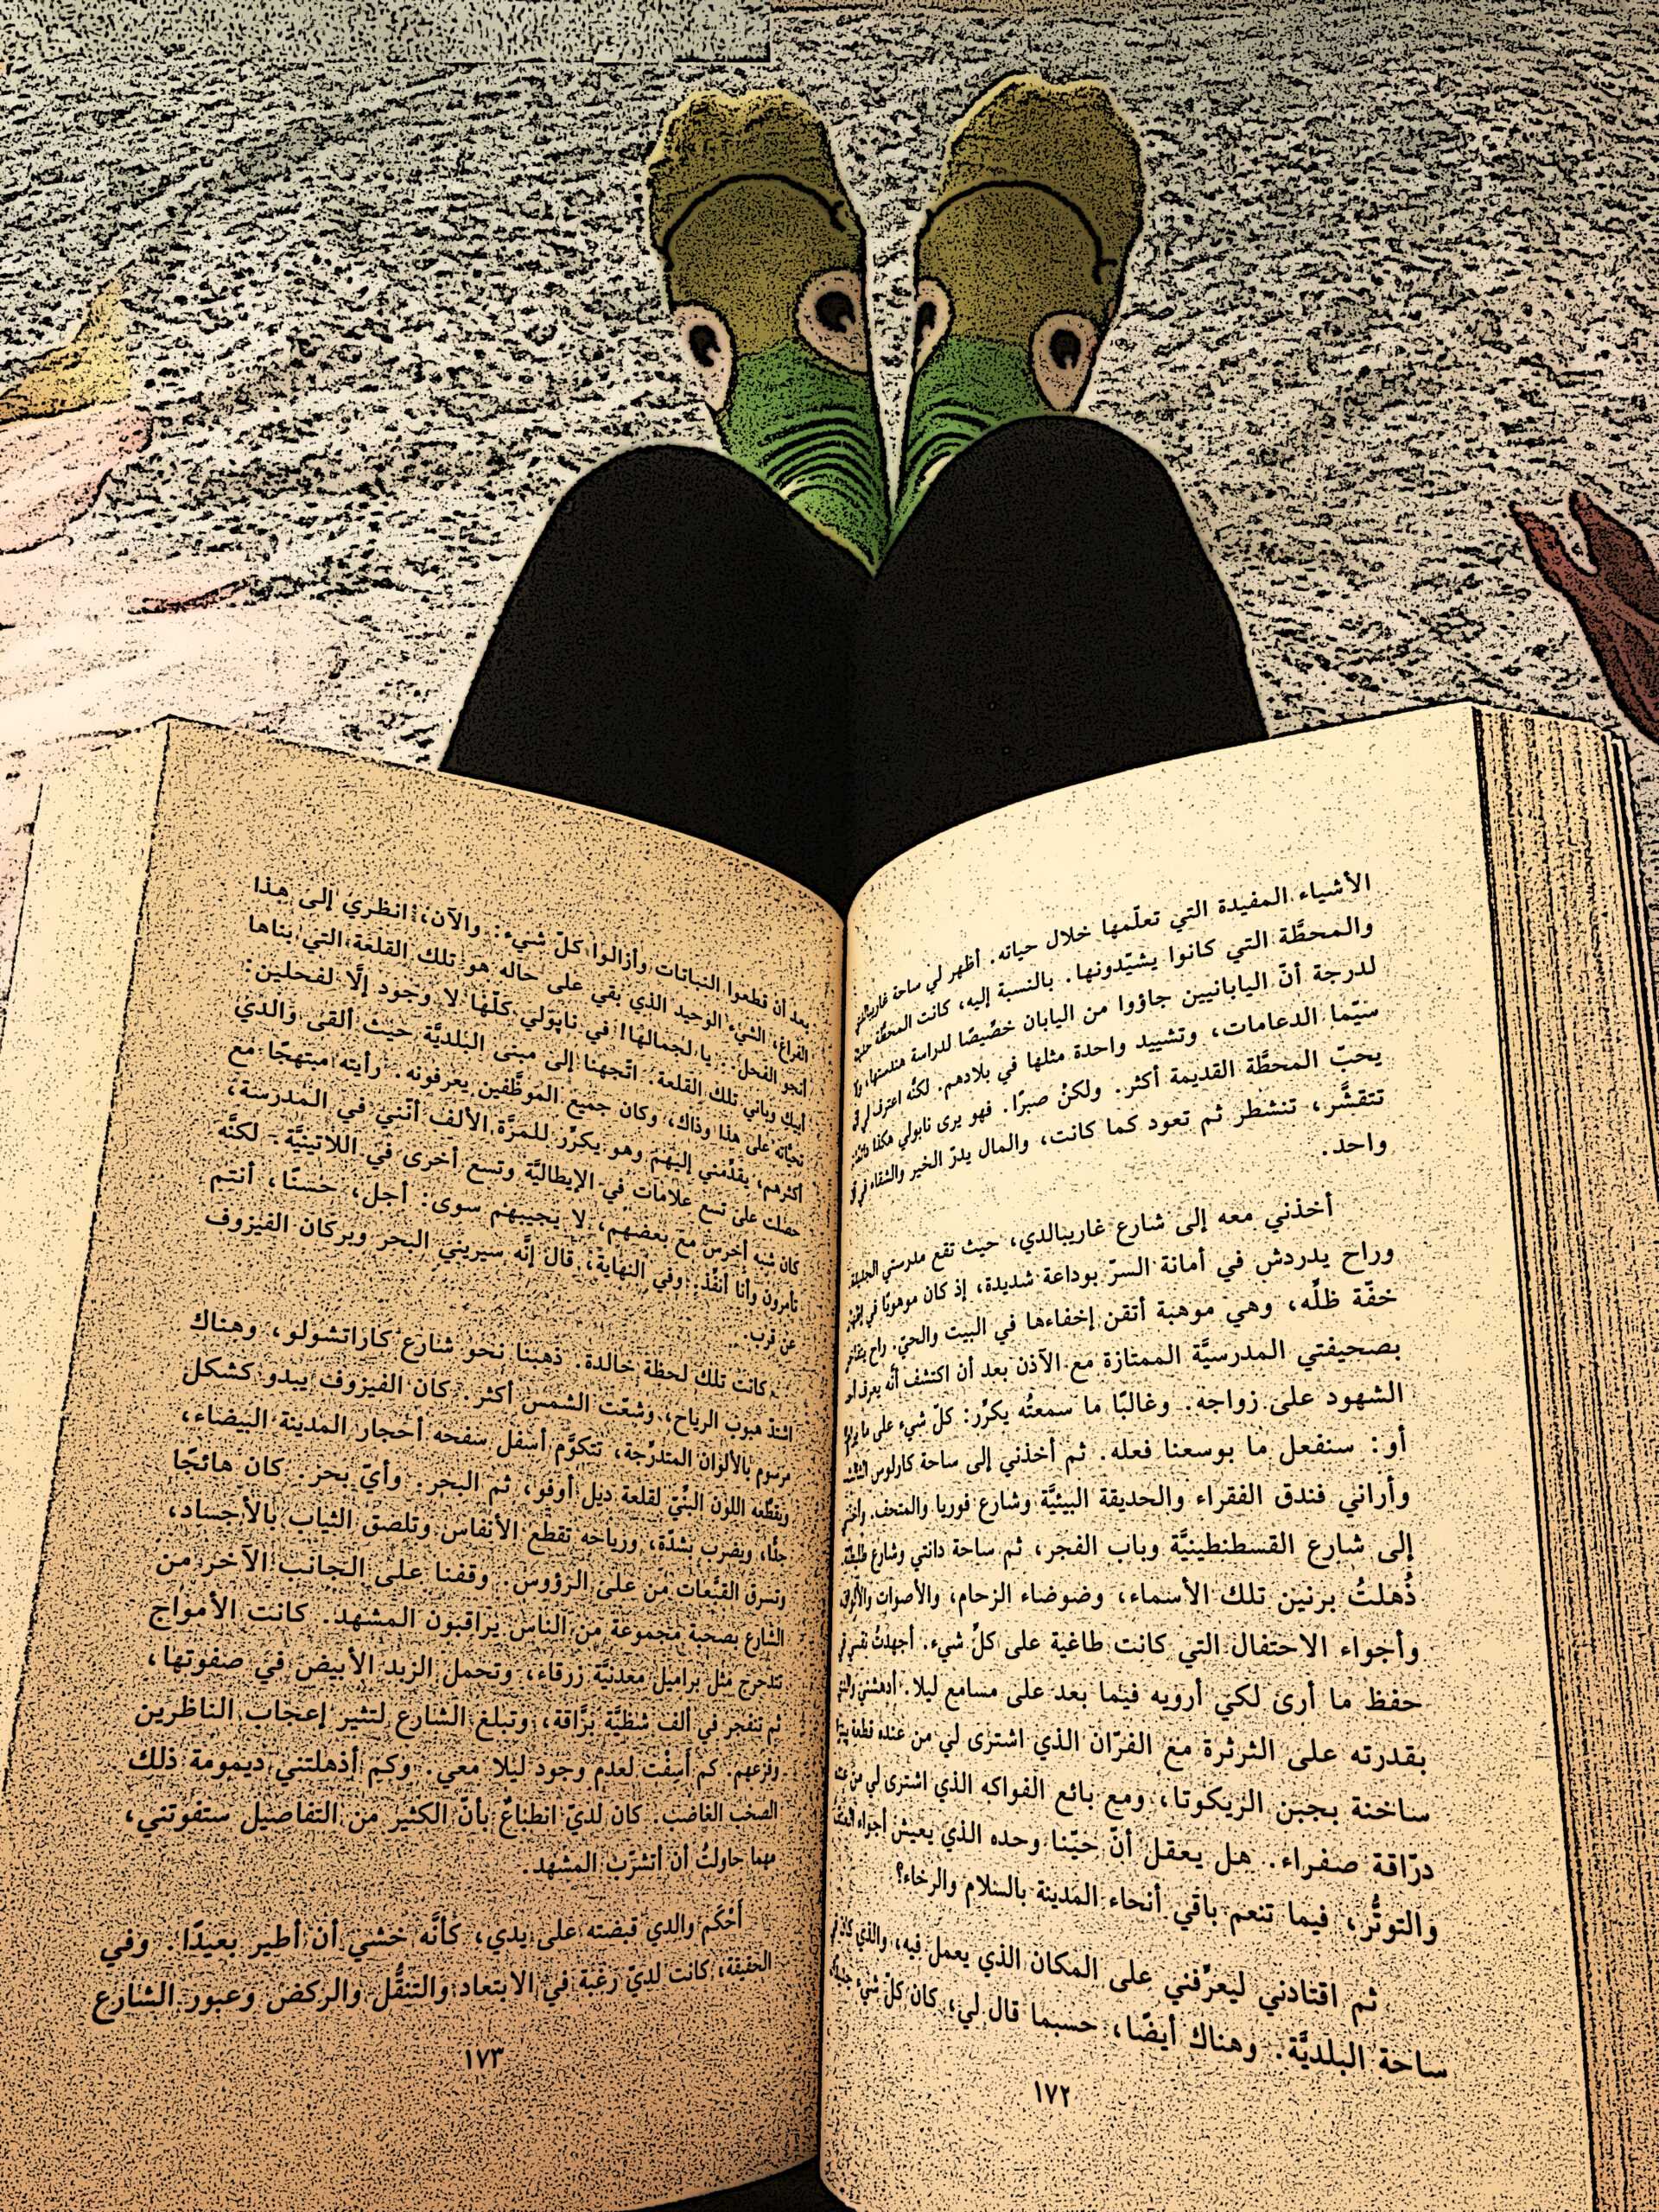 الأشياء المفيدة التي تعلّمها خلال حياته. أظهر لي ساحة غاريبالدي
والمحطَّة التي كانوا يشيّدونها. بالنسبة إليه، كانت المحطَّة حديثة
لدرجة أنّ اليابانيين جاؤوا من اليابان خصّيصًا لدراسة هندستها، ولا
سيّما الدعامات، وتشييد واحدة مثلها في بلادهم. لكنّه اعترف لي
يحبّ المحطَّة القديمة أكثر. ولكنْ صبرًا. فهو يرى نابولي هكذا دائمًا:
تتقشَّر، تنشطر ثم تعود كما كانت، والمال يدرّ الخير والشقاء في
واحد.
أخذني معه إلى شارع غاريبالدي، حيث تقع مدرستي الجديدة
وراح يدردش في أمانة السرّ بوداعة شديدة، إذ كان موهوبًا في
خفّة ظلِّه، وهي موهبة أتقن إخفاءها في البيت والحيّ. راح
بصحيفتي المدرسيَّة الممتازة مع الآذن بعد أن اكتشف أنَّه يعرف أحد
الشهود على زواجه. وغالبًا ما سمعتُه يكرِّر: كلّ شيء على ما يرام؟
أو: سنفعل ما بوسعنا فعله. ثم أخذني إلى ساحة كارلوس الثالث
وأراني فندق الفقراء والحديقة البيئيَّة وشارع فوريا والمتحف. وأخذني
إلى شارع القسطنطينيَّة وباب الفجر، ثم ساحة دانتي وشارع طليطلة.
ذُهلتُ برنين تلك الأسماء، وضوضاء الزحام، والأصوات والألوان،
وأجواء الاحتفال التي كانت طاغية على كلِّ شيء. أجهدتُ نفسي في
حفظ ما أرى لكي أرويه فيما بعد على مسامع ليلا. أدهشني والدي
بقدرته على الثرثرة مع الفرّان الذي اشترى لي من عنده قطعة بيتزا
ساخنة بجبن الريكوتا، ومع بائع الفواكه الذي اشترى لي من عنده
درّاقة صفراء. هل يعقل أنّ حيّنا وحده الذي يعيش أجواء العنف
والتوتُّر، فيما تنعم باقي أنحاء المدينة بالسلام والرخاء؟
ثم اقتادني ليعرِّفني على المكان الذي يعمل فيه، والذي كان في
ساحة البلديَّة. وهناك أيضًا، حسبما قال لي، كان كلّ شيء جديدًا:
١٧٢
بعد أن قطعوا النباتات وأزالوا كلّ شيء: والآن، انظري إلى هذا
الفراغ، الشيء الوحيد الذي بقي على حاله هو تلك القلعة التي بناها
أنجو الفحل... يا لجمالها! في نابولي كلّها لا وجود إلَّا لفحلين:
أبيكِ وباني تلك القلعة. اتّجهنا إلى مبنى البلديَّة حيث ألقى والدي
تحيَّاته على هذا وذاك، وكان جميع الموظَّفين يعرفونه. رأيته مبتهجًا مع
أكثرهم، يقدِّمني إليهم وهو يكرِّر للمرَّة الألف أنَّني في المدرسة،
حصلت على تسع علامات في الإيطاليَّة وتسع أخرى في اللاتينيَّة. لكنَّه
كان شبه أخرس مع بعضهم، لا يجيبهم سوى: أجل، حسنًا، أنتم
تأمرون وأنا أنفّذ. وفي النهاية، قال إنَّه سيريني البحر وبركان الفيزوف
عن قرب.
كانت تلك لحظة خالدة. ذهبنا نحو شارع كاراتشولو، وهناك
اشتدّ هبوب الرياح، وشعّت الشمس أكثر. كان الفيزوف يبدو كشكل
مرسوم بالألوان المتدرِّجة، تتكوّم أسفل سفحه أحجار المدينة البيضاء،
ويقطِّعه اللون البنّيّ لقلعة ديل أوفو، ثم البحر. وأيّ بحر. كان هائجًا
جدًّا، ويضرب بشدّة، ورياحه تقطع الأنفاس وتلصق الثياب بالأجساد،
وتسرق القبَّعات من على الرؤوس. وقفنا على الجانب الآخر من
الشارع بصحبة مجموعة من الناس يراقبون المشهد. كانت الأمواج
تتدحرج مثل براميل معدنيَّة زرقاء، وتحمل الزبد الأبيض في صفوتها،
ثم تنفجر في ألف شظيَّة برَّاقة، وتبلغ الشارع لتثير إعجاب الناظرين
وفزعهم. كم أسِفْت لعدم وجود ليلا معي. وكم أذهلتني ديمومة ذلك
الصخب الغاضب. كان لديّ انطباعٌ بأنّ الكثير من التفاصيل ستفوتني،
مهما حاولتُ أن أتشرَّب المشهد.
أَحْكَم والدي قبضته على يدي، كأنَّه خشي أن أطير بعيدًا. وفي
الحقيقة، كانت لديّ رغبة في الابتعاد والتنقُّل والركض وعبور الشارع
١٧٣